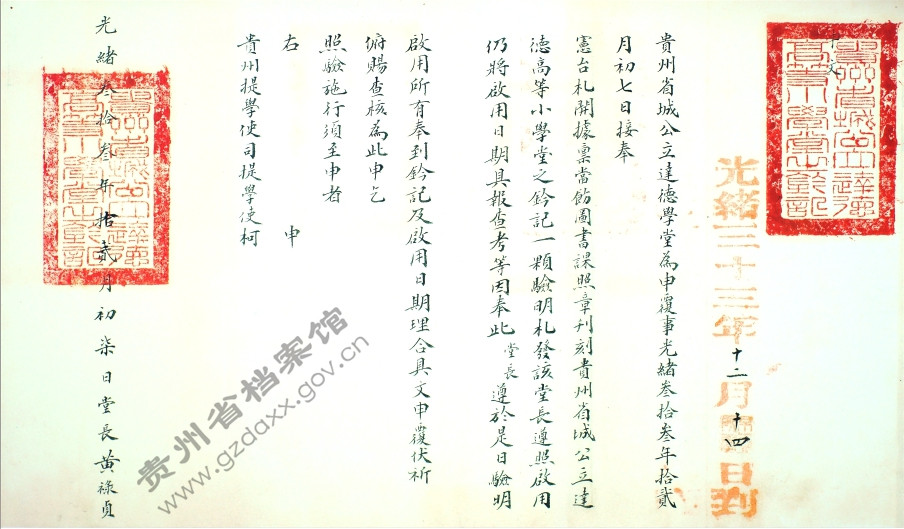 申文
貴州省城公立達德高等小學堂之鈐記
光緒三十三年十二月十四日到
貴州省城公立達德學堂為申覆事光緒叁拾叁年拾貳
月初七日接奉
憲台札開據稟當飭圖書課照章刊刻貴州省城公立達
德高等小學堂之鈐記一顆驗明札發該堂長遵照啟用
仍將啟用日期具報查考等因奉此堂長遵於是日驗明
啟用所有奉到鈐記及啟用日期理合具文申覆伏祈
俯賜查核為此申乞
照驗施行須至申者
右 申
貴州提學使司提學使柯
光緒叁拾叁年拾貳月初柒日堂長黃祿貞
貴州省城公立達德高等小學堂之鈐記
贵州省档案馆
www.gzdaxx.gov.cn